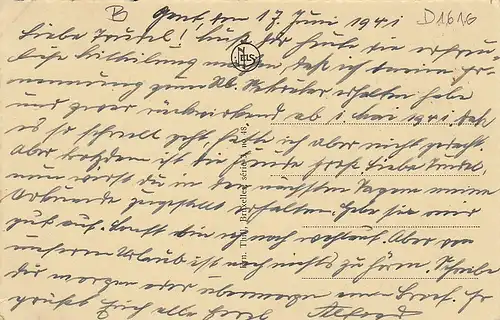 B
Gent, den 17. Juni 1941
D1616
Liebe Trudel! Muß dir heute die erfreu-
liche Mitteilung machen, daß ich meine Er-
nennung zum Sekretär erhalten habe
und zwar rückwirkend ab 1 Mai 1941. Daß
es so schnell geht, hätte ich aber nicht gedacht.
Aber trotzdem ist die Freude groß. Liebe Trudel,
nun wirst du in den nächsten Tagen meine
Urkunde zugestellt erhalten. Hebe sie mir
gut auf. Sonst bin ich noch wohlauf. Aber von
unserem Urlaub ist noch nichts zu hören. Schreibe
dir morgen oder übermorgen einen Brief. Es
grüßt Euch alle herzl. Alfred
NELS
Ern. Thill, Bruxelles, série no 48